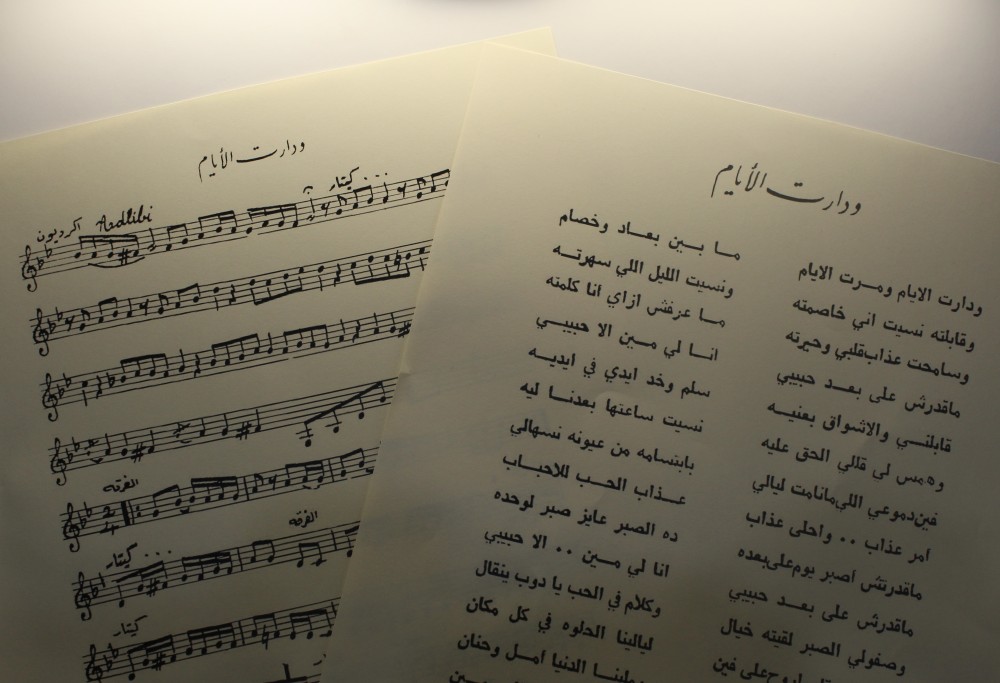 ودارت الأيام
اكرديون Aedlibi
كيتار ...
الفرقه
الفرقه
كيتار ...
كيتار
ودارت الأيام
ودارت الايام ومرت الايام ما بين بعاد وخصام
وقابلته نسيت اني خاصمته ونسيت الليل اللي سهرته
وسامحت عذاب قلبي وحيرته ما عرفش ازاي انا كلمته
ماقدرش على بعد حبيبي انا لي مين الا حبيبي
قابلني والاشواق بعنيه سلم وخد ايدي في ايديه
وهمس لي قالي الحق عليه نسيت ساعتها بعدنا ليه
فين دموعي اللي مانامت ليالي بابتسامه من عيونه نسهالي
امر عذاب .. واحلى عذاب عذاب الحب للاحباب
ماقدرتش اصبر يوم على بعده ده الصبر عايز صبر لوحده
ماقدرش على بعد حبيبي انا لي مين .. الا حبيبي
وصفولي الصبر لقيته خيال وكلام في الحب يا دوب ينقال
اروح على فين ليالينا الحلوه في كل مكان
الدنيا أمل وحنان